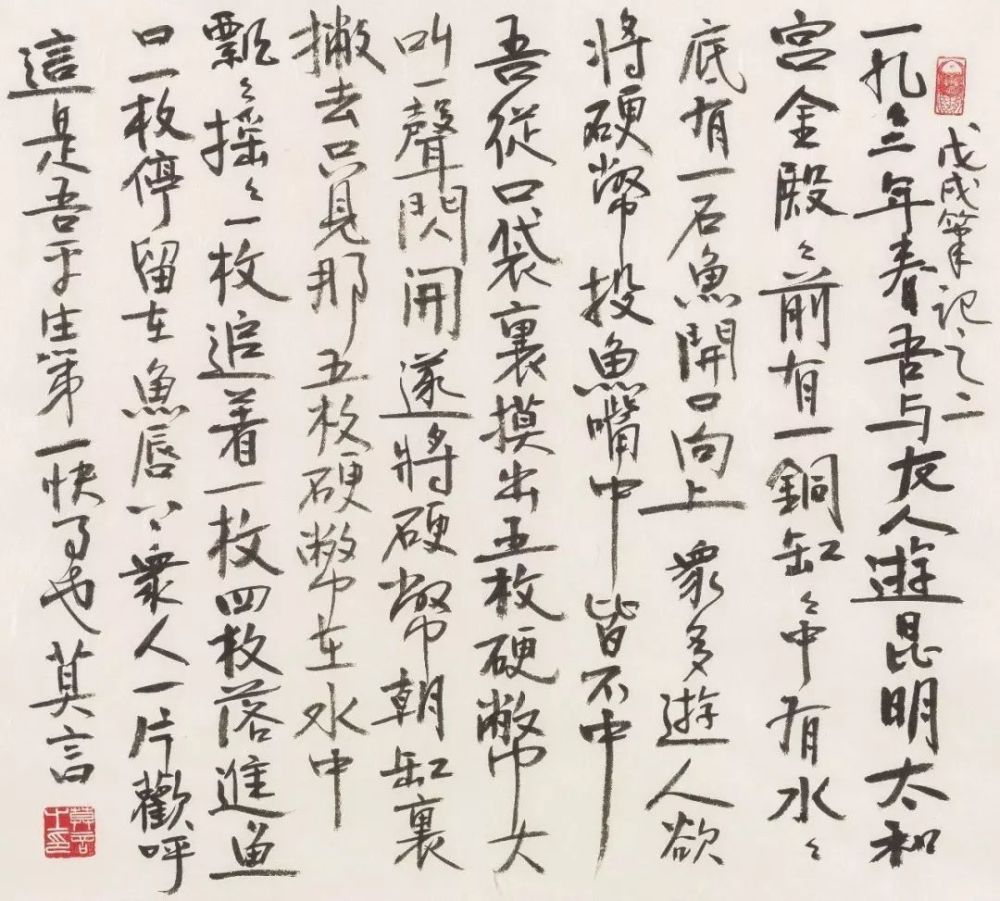 戊戌筆记之二
一九〻三年春吾与友人遊昆明太和
宫金殿〻前有一銅缸〻中有水〻
底有一石魚開口向上衆多遊人欲
将硬幣投魚嘴中皆不中
吾從口袋裏摸出五枚硬幣大
叫一聲閃開遂將硬幣朝缸裏
撇去只見那五枚硬幣在水中
飄〻摇〻一枚追着一枚四枚落進魚
口一枚停留在魚唇上衆人一片歡呼
這是吾平生第一快事也莫言